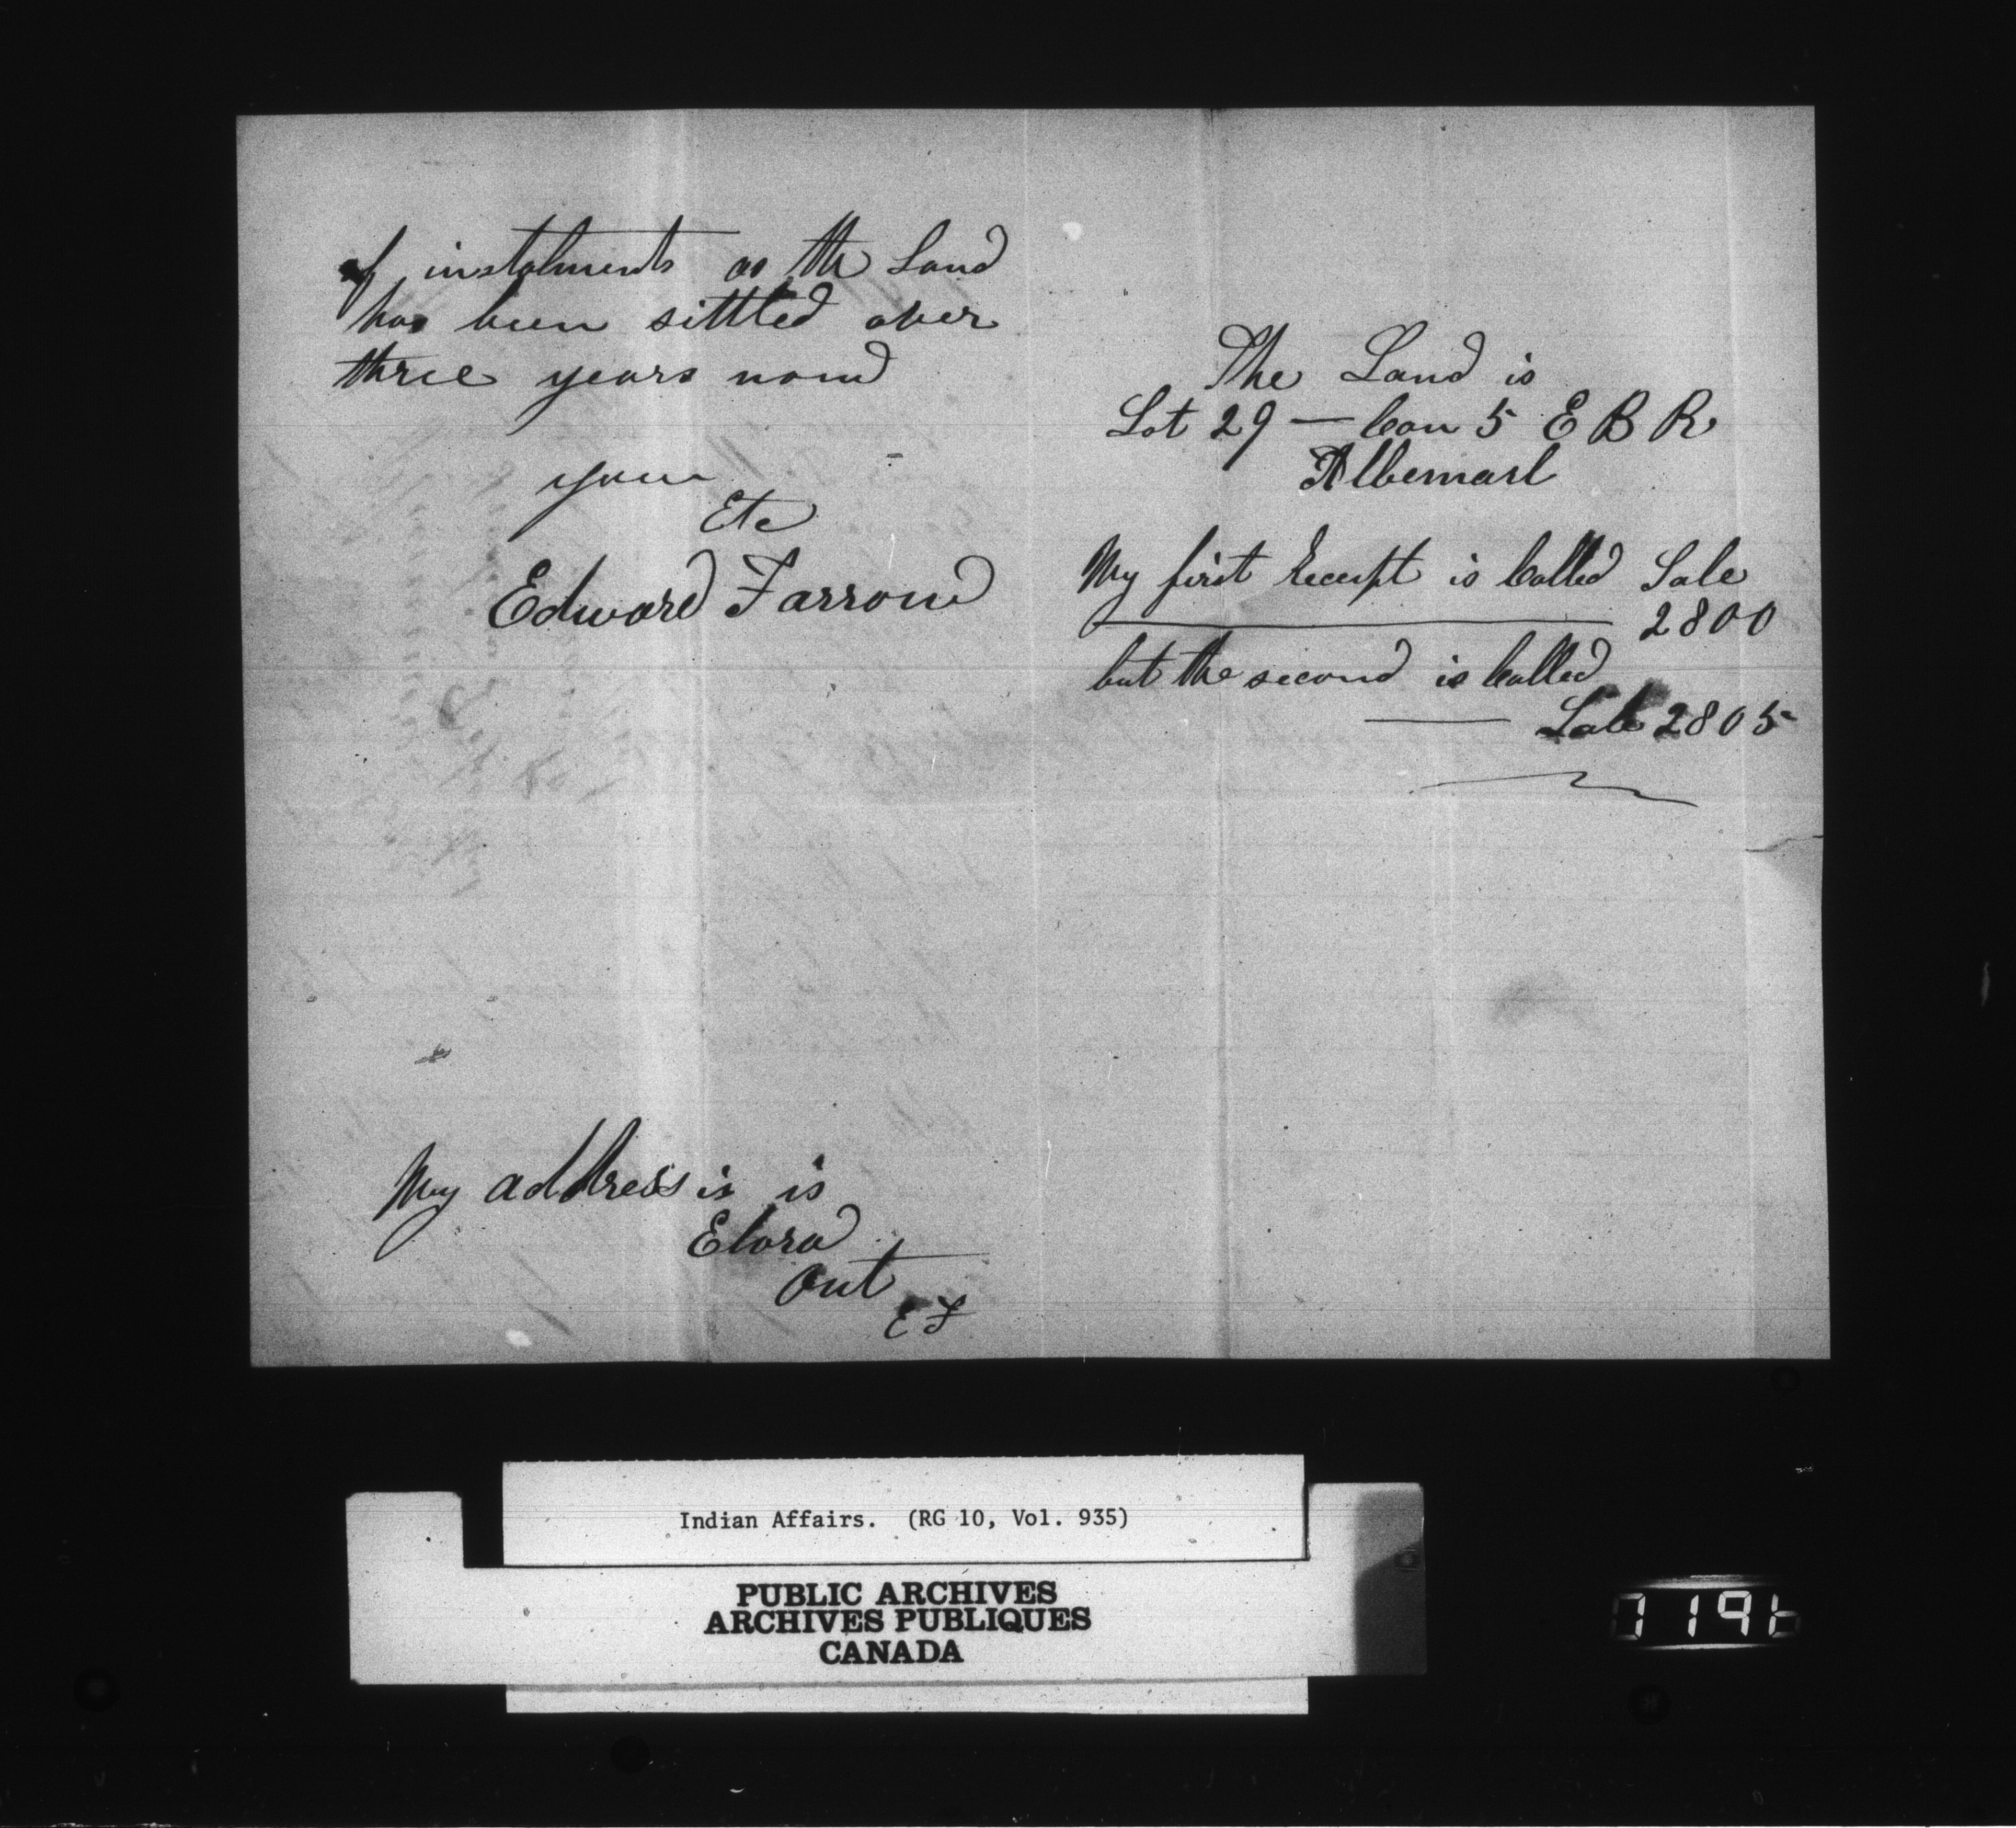 of instalments as the Land
has been sittled over
three years now
your
Etc
Edward Farrow
My address is is
Elora
Ont
E F
The Land is
Lot 29 — Con 5 E B R
Albemarl
My first Receipt is Called Sale
2800
but the second is Called
— Sale 2805
Indian Affairs. (RG 10, Vol. 935)
PUBLIC ARCHIVES
ARCHIVES PUBLIQUES
CANADA